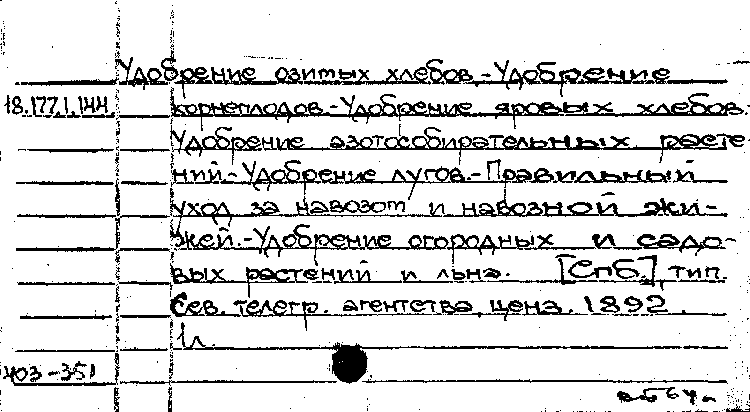 Удобрение озимых хлебов.-Удобрение
18.177.1.144. корнеплодов.-Удобрение яровых хлебов.
Удобрение азотособирательных расте-
ний.-Удобрение лугов.-Правильный
уход за навозом и навозной жи-
жей.-Удобрение огородных и садо-
вых растений и льна. [Спб.], тип.
Сев. телегр. агентства, ценз. 1892.
1л.
403-351